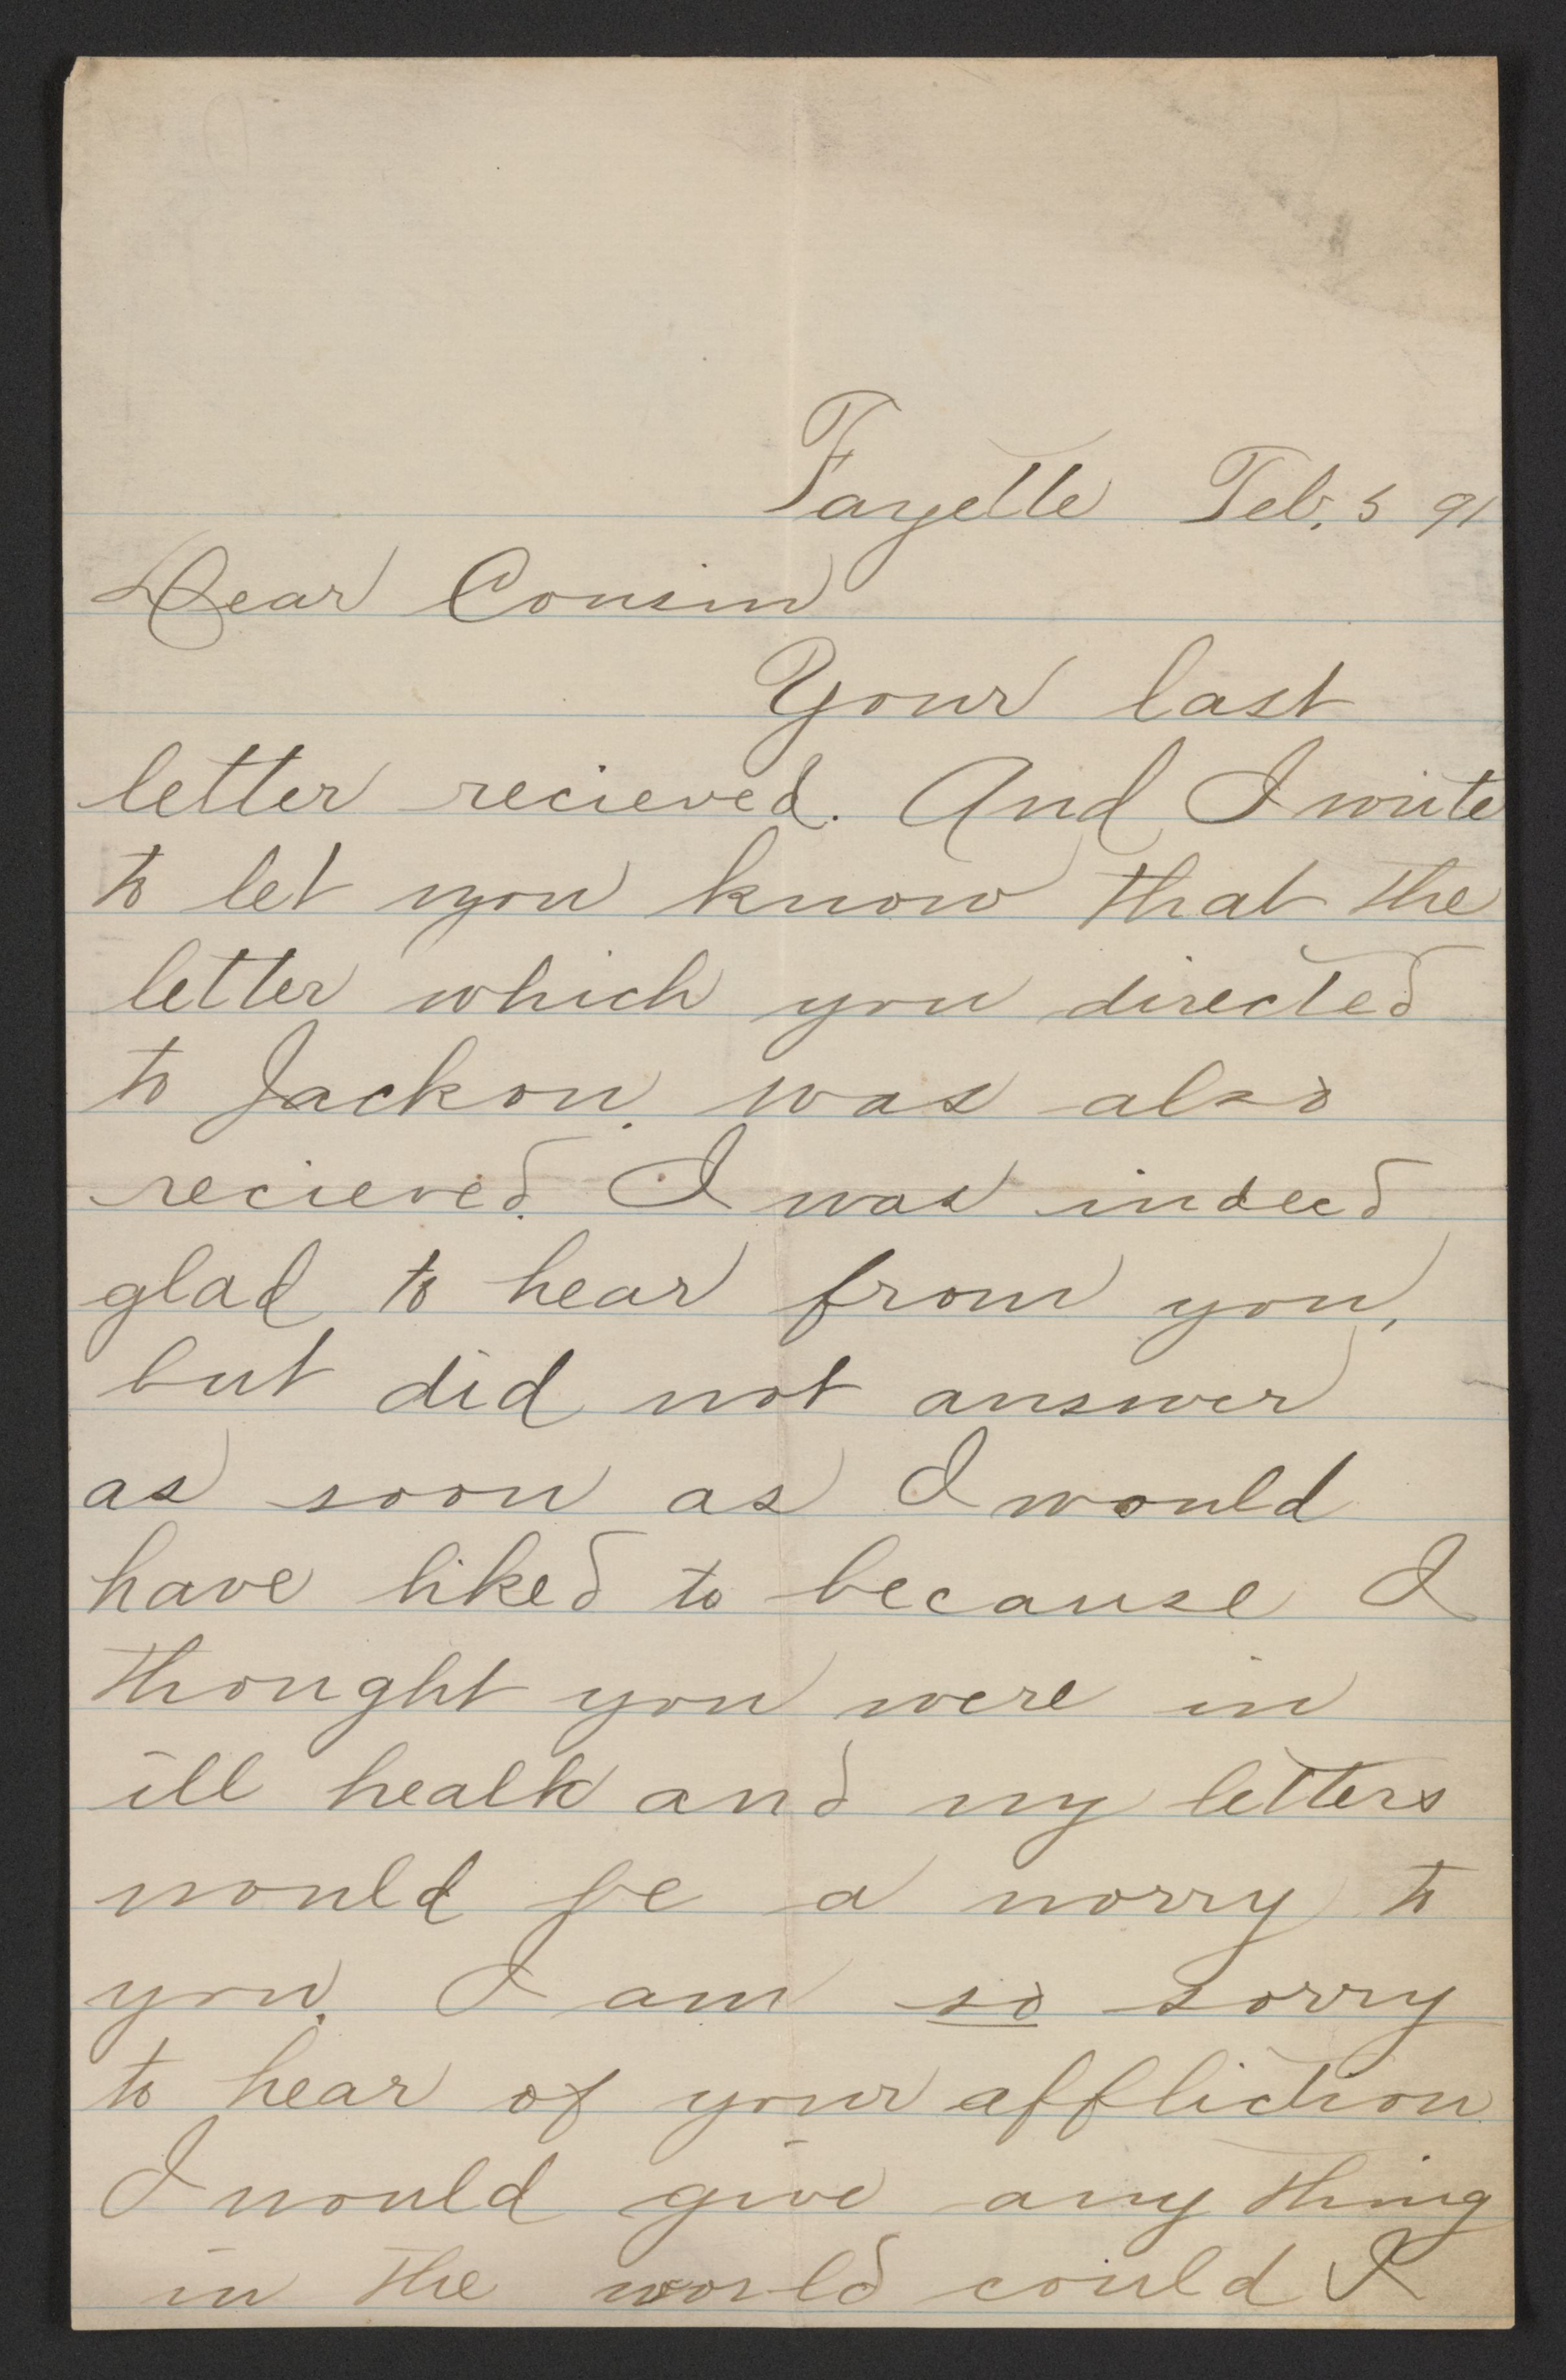 Fayette Feb. 5 91
Dear Cousin
Your last
letter recieved. And I write
to let you know that the
letter which you directed
to Jackon. was also
recieved. I was indeed
glad to hear from you,
but did not answer
as soon as I would
have liked to because I
thought you were in
ill healh and my letters
would be a worry to
you. I am so sorry
to hear of your affliction
I would give any thing
in the world could I